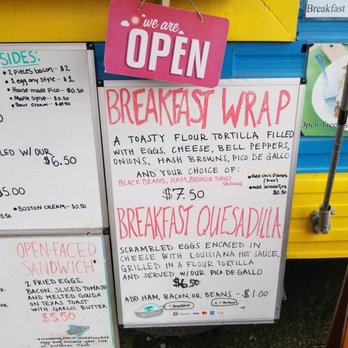 we are
OPEN
Breakfast
SIDES:
• 2 pieces bacon - $2
• 1 egg any style - $1
• House-made Pico - $0.50
• Maple Syrup -
• Sour Cream -
$6.50
5.00
• BOSTON CREAM -- $0.50
OPEN-FACED
SANDWICH
2 FRIED EGGS,
BACON, SLICED TOMATO
AND MELTED GOUDA
ON TEXAS TOAST
WITH GARLIC BUTTER
$5.50
BREAKFAST WRAP
A TOASTY FLOUR TORTILLA FILLED
WITH EGGS, CHEESE, BELL PEPPERS,
ONIONS, HASH BROWNS, PICO DE GALLO
AND YOUR CHOICE OF:
BLACK BEANS, HAM, BACON OR TURKEY
SAUSAGE
$7.50
BREAKFAST QUESADILLA
SCRAMBLED EGGS ENCASED IN
CHEESE WITH LOUISIANA HOT SAUCE,
GRILLED IN A FLOUR TORTILLA
AND SERVED W/OUR PICO DE GALLO
$6.50
ADD HAM, BACON, OR BEANS - $1.00